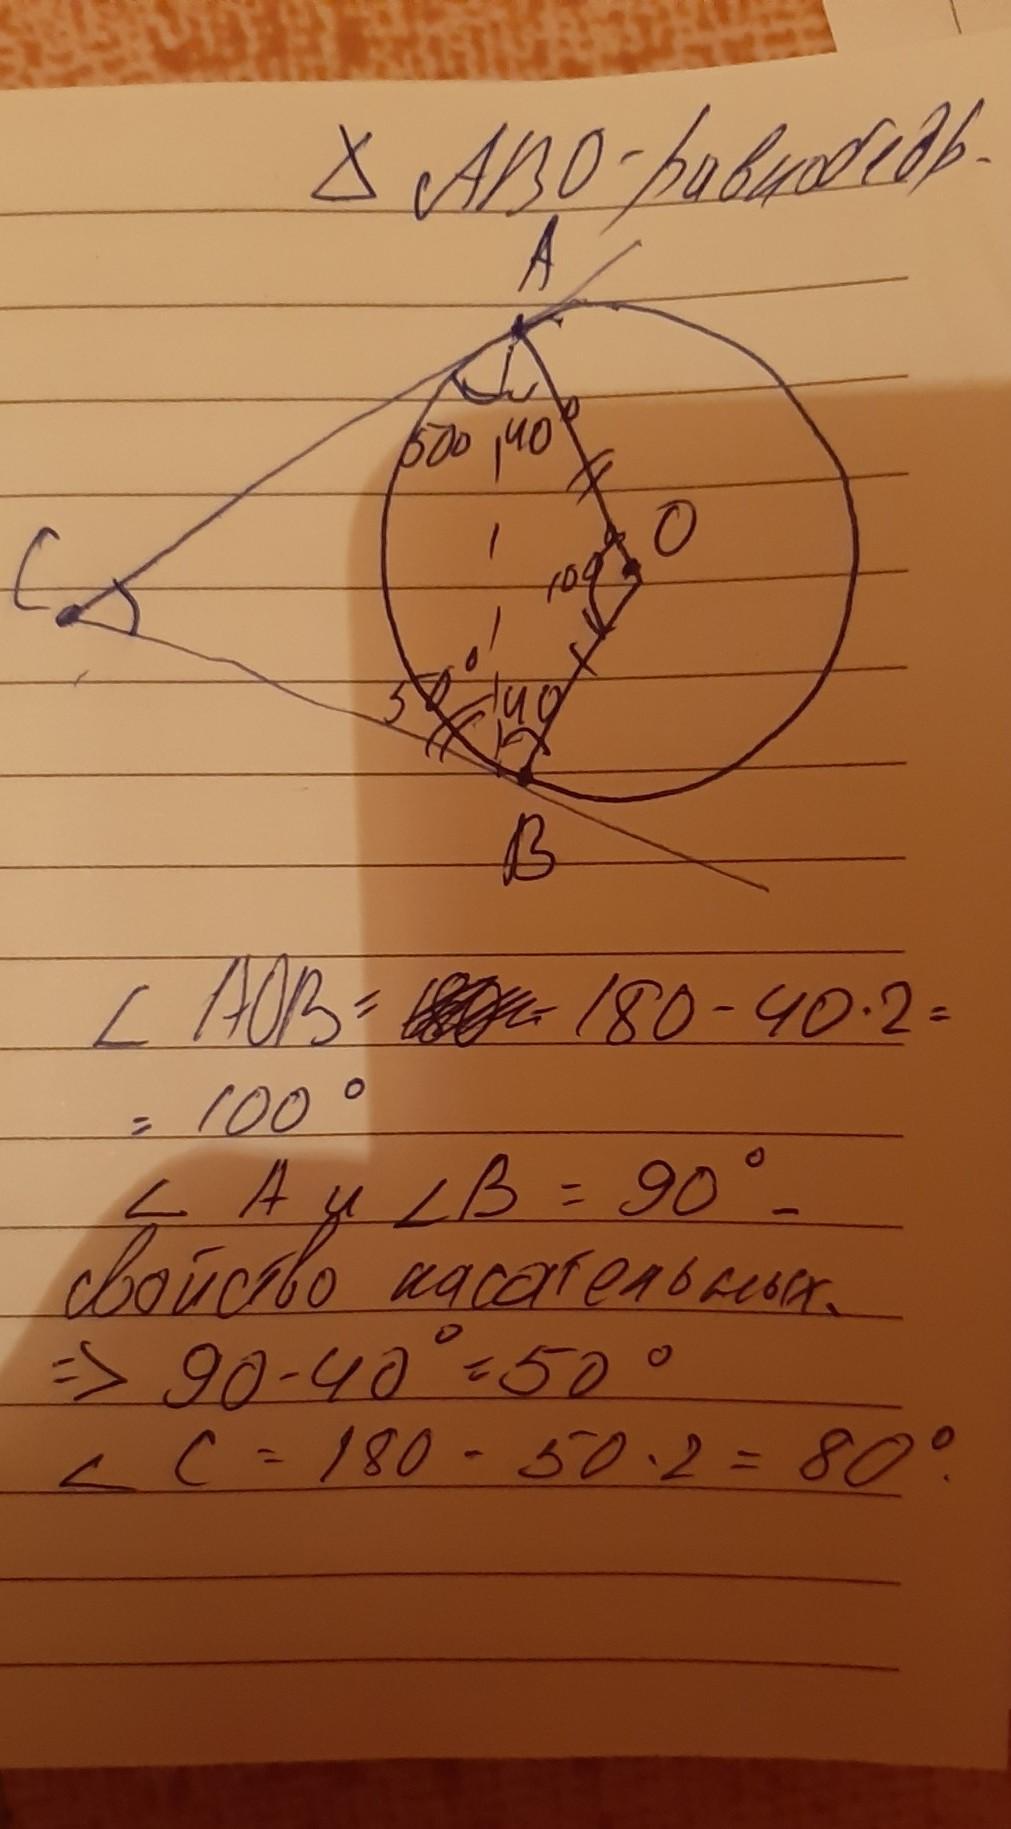 Δ ABO - равнобедр.
A
50° 40°
O
100°
C
50° 40
B
∠ AOB = 180 - 40·2 =
= 100°
∠ A и ∠B = 90° -
свойство касательных.
=> 90-40°=50°
∠ C = 180 - 50·2 = 80°.